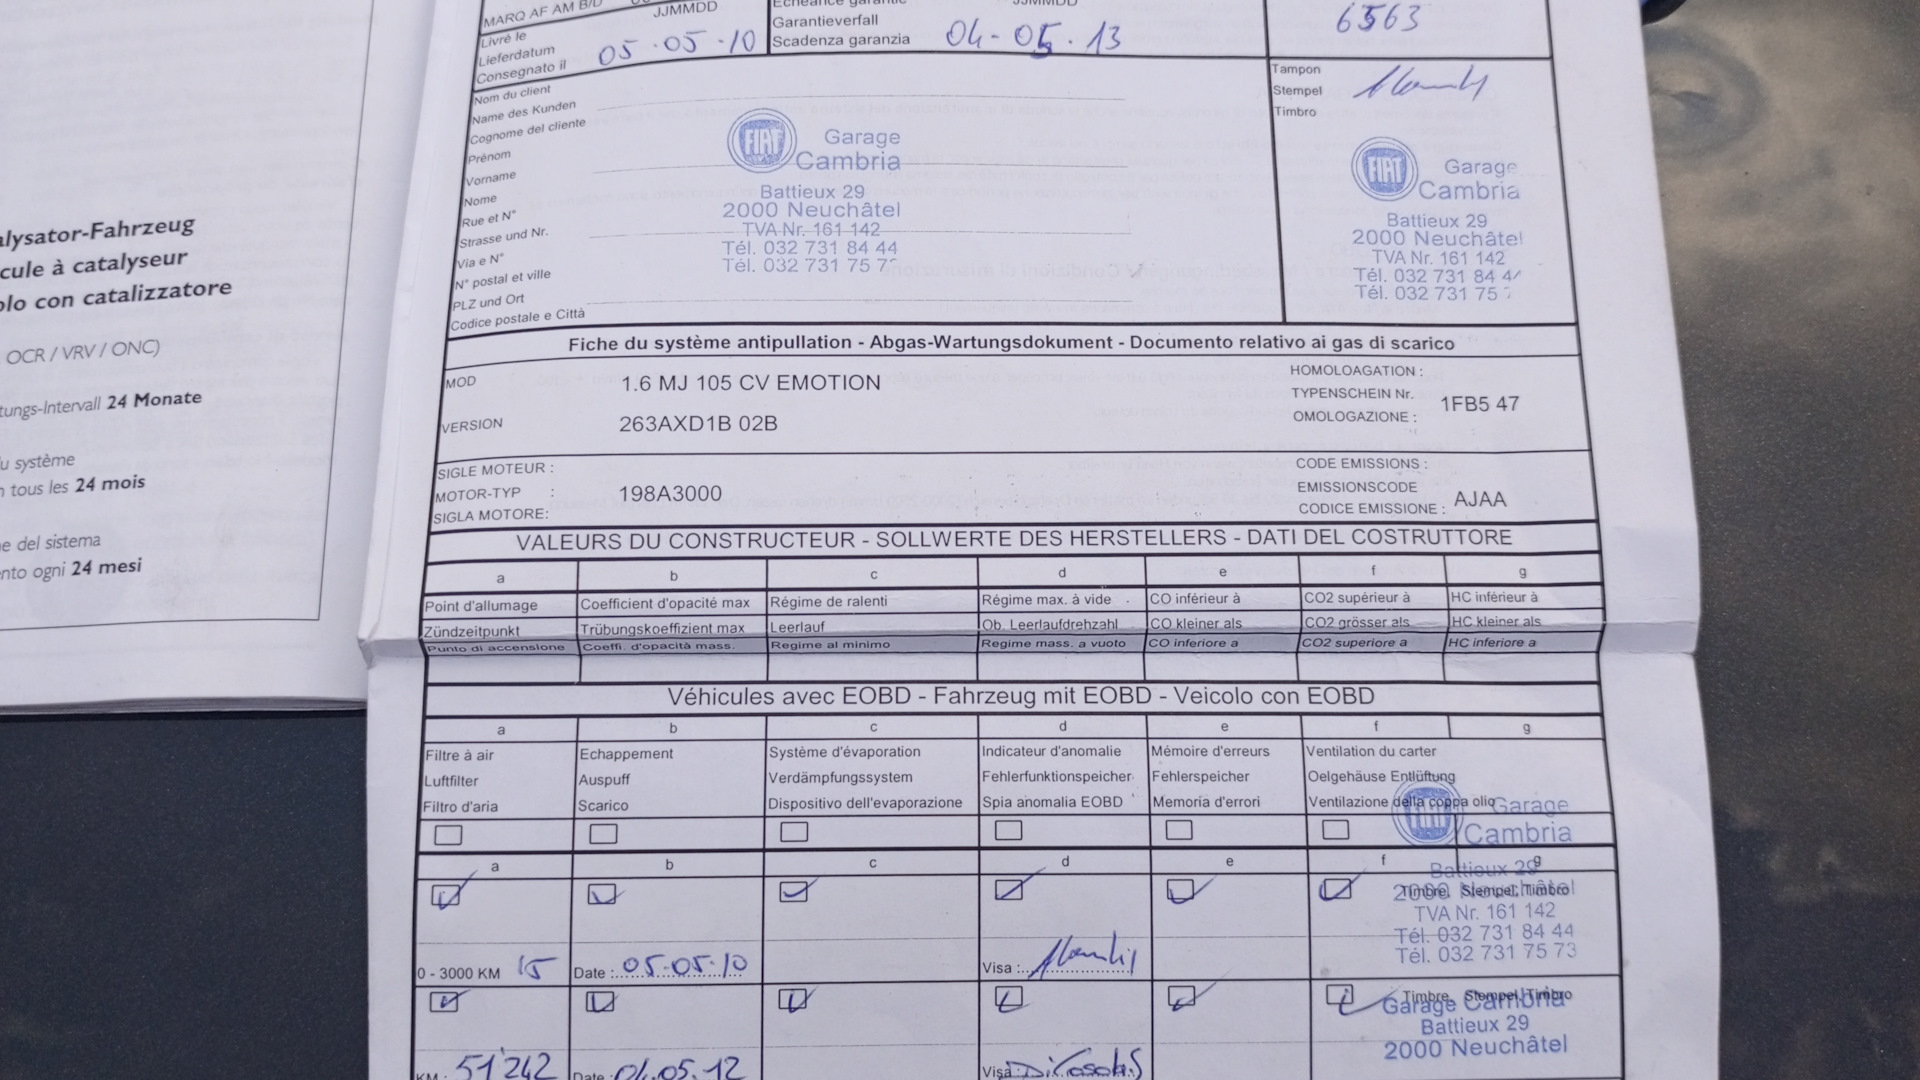 MARQ AF AM B/D
JJMMDD
Livré le
Lieferdatum
Consegnato il
05.05.10
Echéance garantie
JJMMDD
Garantieverfall
Scadenza garanzia
04-05.13
6563
Nom du client
Name des Kunden
Cognome del cliente
Prénom
Vorname
Nome
Rue et N°
Strasse und Nr.
Via e N°
N° postal et ville
PLZ und Ort
Codice postale e Città
FIAT
Garage
Cambria
Battieux 29
2000 Neuchâtel
TVA Nr. 161 142
Tél. 032 731 84 44
Tél. 032 731 75 7
Tampon
Stempel
Timbro
FIAT
Garage
Cambria
Battieux 29
2000 Neuchâtel
TVA Nr. 161 142
Tél. 032 731 84 4
Tél. 032 731 75
alysator-Fahrzeug
cule à catalyseur
olo con catalizzatore
OCR / VRV / ONC)
tungs-Intervall 24 Monate
u système
n tous les 24 mois
e del sistema
nto ogni 24 mesi
Fiche du système antipullation - Abgas-Wartungsdokument - Documento relativo ai gas di scarico
MOD
1.6 MJ 105 CV EMOTION
VERSION
263AXD1B 02B
HOMOLOAGATION :
TYPENSCHEIN Nr.
OMOLOGAZIONE :
1FB5 47
SIGLE MOTEUR :
MOTOR-TYP :
SIGLA MOTORE:
198A3000
CODE EMISSIONS :
EMISSIONSCODE
CODICE EMISSIONE :
AJAA
VALEURS DU CONSTRUCTEUR - SOLLWERTE DES HERSTELLERS - DATI DEL COSTRUTTORE
a b c d e f g
Point d'allumage Coefficient d'opacité max Régime de ralenti Régime max. à vide CO inférieur à CO2 supérieur à HC inférieur à
Zündzeitpunkt Trübungskoeffizient max Leerlauf Ob. Leerlaufdrehzahl CO kleiner als CO2 grösser als HC kleiner als
Punto di accensione Coeffi. d'opacità mass. Regime al minimo Regime mass. a vuoto CO inferiore a CO2 superiore a HC inferiore a
Véhicules avec EOBD - Fahrzeug mit EOBD - Veicolo con EOBD
a b c d e f g
Filtre à air Echappement Système d'évaporation Indicateur d'anomalie Mémoire d'erreurs Ventilation du carter
Luftfilter Auspuff Verdämpfungssystem Fehlerfunktionspeicher Fehlerspeicher Oelgehäuse Entlüftung
Filtro d'aria Scarico Dispositivo dell'evaporazione Spia anomalia EOBD Memoria d'errori Ventilazione della coppa olio
Garage
Cambria
a b c d e f g
Battieux 29
2000 Neuchâtel
Timbre, Stempel, Timbro
TVA Nr. 161 142
Tél. 032 731 84 44
Tél. 032 731 75 73
0 - 3000 KM 15 Date : 05-05-10 Visa :
Timbre, Stempel, Timbro
Garage Cambria
Battieux 29
2000 Neuchâtel
KM : 51'242 Date : 04.05.12 Visa :